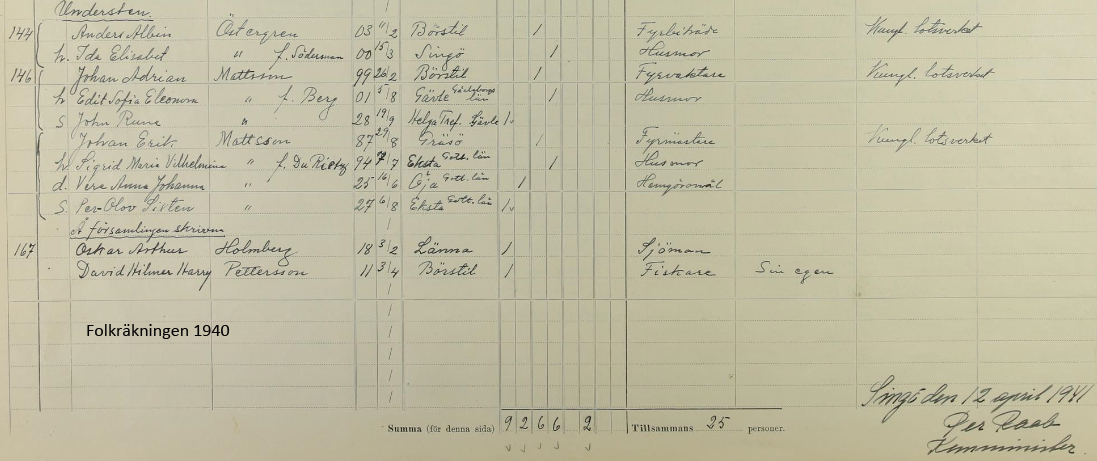 Understen.
144 Anders Albin Östergren 03 11/2 Börstil 1 Fyrbiträde Kungl. lotsverket
h. Ida Elisabet " f. Söderman 00 15/3 Singö 1 Husmor
146 Johan Adrian Mattsson 99 26/2 Börstil 1 Fyrvaktare Kungl. lotsverket
h Edit Sofia Eleonora " f. Berg 01 5/8 Gävle Gävleborgs län 1 Husmor
S John Rune " 28 19/9 Helga Tref. Gävle 1
Johan Erik Mattsson 87 29/8 Gräsö 1 Fyrmästare Kungl lotsverket
h. Sigrid Maria Vilhelmina " f. Du Rietz 94 7/7 Eksta Gott. län 1 Husmor
d. Vera Anna Johanna " 25 16/6 Gott. län 1 Hemgöromål
S. Per-Olov Sixten " 27 6/8 Eksta Gott. län 1
Å församlingen skrivna
167 Oskar Arthur Holmberg 18 3/2 Länna 1 Sjöman
David Hilmer Harry Pettersson 11 3/4 Börstil 1 Fiskare Sin egen
Folkräkningen 1940
Singö den 12 april 1941
Per Raab
Komminister
Summa (för denna sida) 9 2 6 6 2 Tillsammans 25 personer.